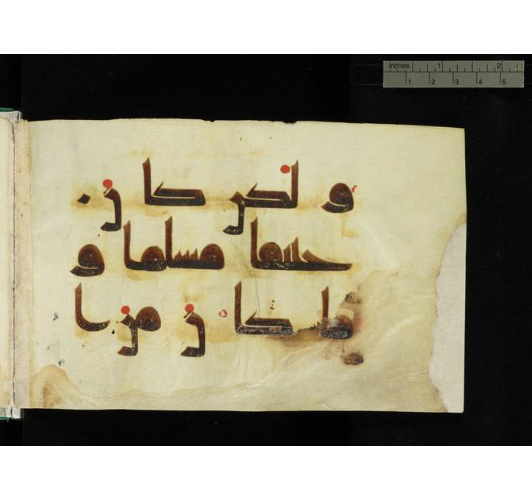 Inches 1 2
1 2 3 4 5
ولكن كان
حنيفا مسلما و
ما كان من ا